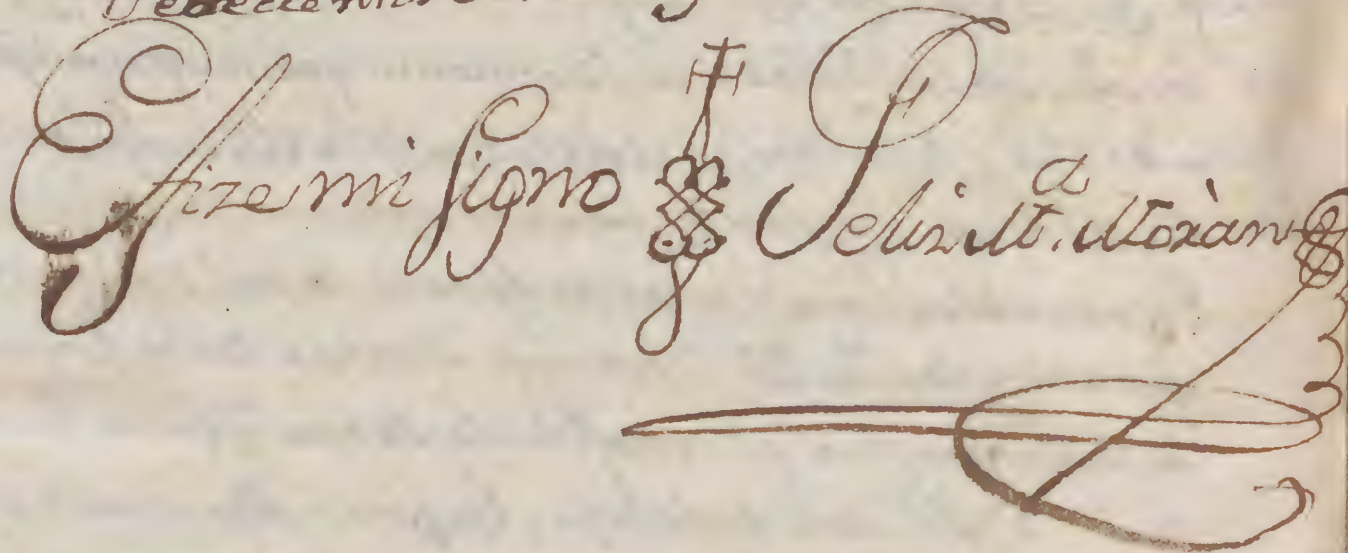 Efize mi signo Felix M.ª Moràn